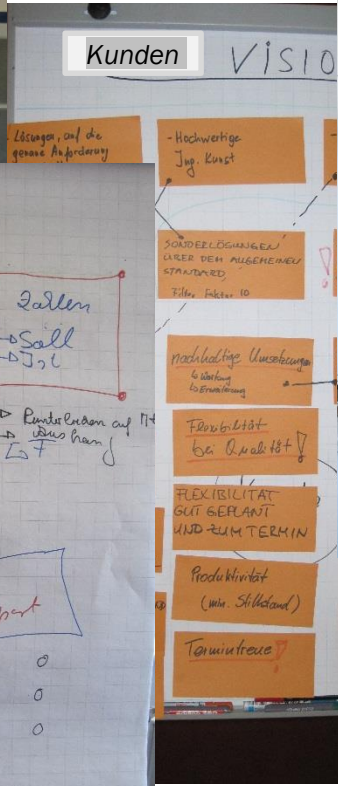 Kunden
VISIO
Lösungen, auf die
genaue Anforderung
- Hochwertige
Ing. Kunst
SONDERLÖSUNNGEN
ÜBER DEM ALLGEMEINEN
STANDARD,
Filter Faktor 10
!
nachhaltige Umsetzungen
↳ Wartung
Flexibilität
bei Qualität!
FLEXIBILITÄT
GUT GEPLANT
UND ZUM TERMIN
Produktivität
(min. Stillstand)
Termintreue!
Zahlen
→ Soll
→ Ist